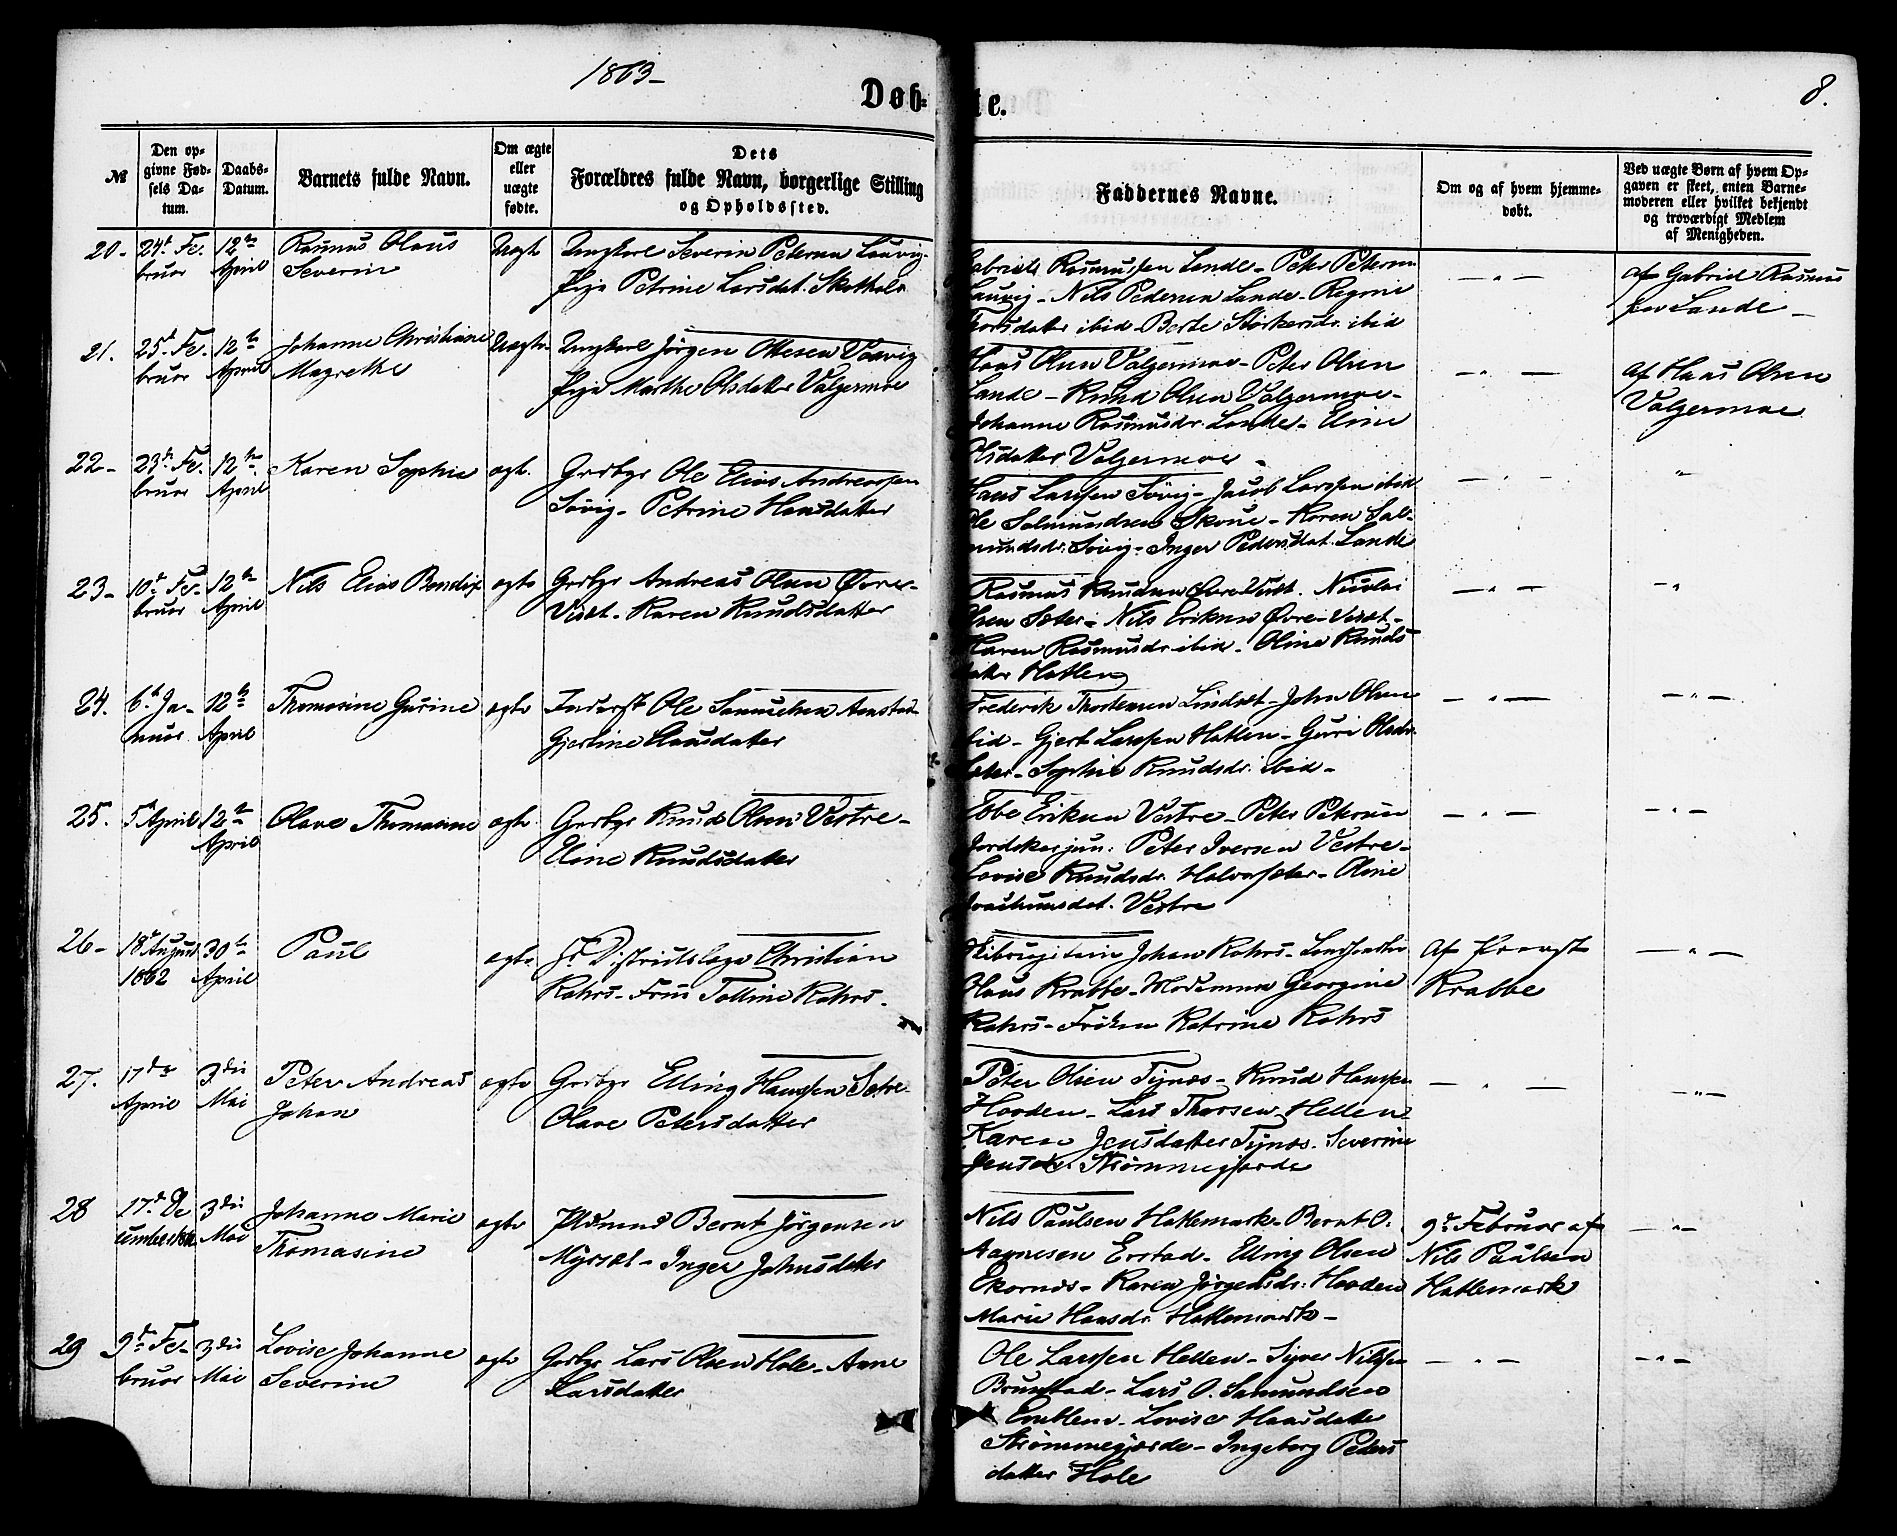 1863-
8.
Døb-te.
№
Den opgivne Fødsels Datum.
Daabs-Datum.
Barnets fulde Navn.
Om ægte eller uægte fødte.
Dets Forældres fulde Navn, borgerlige Stilling og Opholdssted.
Faddernes Navne.
Om og af hvem hjemmedøbt.
Ved uægte Børn af hvem Opgaven er skeet, enten Barnemoderen eller hvilket bekjendt og troværdigt Medlem af Menigheden.
20- 24de Februar 12te April
Rasmus Olaus
Severin
Uægte
Ungkarl Severin Petersen
Pige Petrine Larsdat.
Gabriel Rasmussen Lande- Peter Petersen
Lauvig- Nils Pedersen Lande- Regine
ibid- Berte ibid
- " -
af Gabriel Rasmus
sen Lande -
21. 25de Februar 12te April
Johanne Christiane
Magrethe
Uægte
Ungkarl Jørgen Ottesen
Pige Marthe Olsdatter Valgermoe
Hans Olsen Valgermoe- Peter Olsen
Lande- Knud Olsen Valgermoe-
Johanne Rasmusdr. Lande- Eline
Olsdatter Valgermoe -
- " -
af Hans Olsen
Valgermoe
22- 23de Februar 12te April
Karen Sophie
ægte
Grdbgr Ole Elias Andreassen
Søvig- Petrine Hansdatter
Hans Larssen Søvig- Jacob Larssen ibid
Ole Salmundsen Skoue- Karen Sal-
mundsdr. Søvig- Inger Pedersdat. Lande
- " -
"
23- 10de Februar 12te April
Nils Elias Bendix
ægte
Grdbgr Andreas Olsen Øvre-
- Karen Knudsdatter
Rasmus Knudsen Nicolai
Olsen Sæter- Nils Eriksen Øvre-
Karen Rasmusdr ibid. Oline Knuds
datter Hatlen
- " -
- "
24. 6te Januar 12te April
Thomasine Gurine
ægte
Inderst Ole Samuelsen
Gjertine Clausdatter
Frederik - John Olsen
ibid- Gjert Larssen Hatlen- Guri Olsdr.
Sæter- Sophie Knudsdr. ibid-
- " -
- " -
25. 5te April 12te April
Olave Thomasine
ægte
Grdbgr Knud Olsen Vestre-
Eline Knudsdatter
Ebbe Eriksen Vestre- Peter Petersen
Peter Iversen Vestre-
Lovise Knudsdr. - Oline
Vestre
- " -
- " -
26- 18de August 1862 30te April
Paul
ægte
Hr. Districtslæge Christian
Rohrs- Frue Rohrs-
Johan Rohrs-
Claus Krabbe- Georgine
Rohrs- Frøken Katrine Rohrs
af Provst
Krabbe
- " -
27. 17de April 3die Mai
Peter Andreas
Johan
ægte
Grdbgr Elling Hanssen
Olave Petersdatter
Peter Olsen Tynes- Knud Hanssen
Hovden- Lars Thorsen Hellen-
Karen Jensdatter Tynes. Severine
Jensdr. Strømmegjerde
- " -
- " -
28 17de December 3die Mai
Johanne Marie
Thomasine
ægte
Bernt Jørgensen
Myrset- Inger Johnsdatter
Nils Paulsen Hatlemark- Bernt O.
Aagnesen Erstad- Elling Olsen
Ekornes- Karen Jørgensdr. Hovden
Marie Hansdr. Hatlemark-
9de Februar af
Nils Paulsen
Hatlemark
- " -
29 9de Februar 3die Mai
Lovise Johanne
Severine
ægte
Grdbgr Lars Olsen Hole- Anne
Larsdatter
Ole Larssen Hellen- Syver Nilssen
Brunstad- Lars O. Samundsen
Emblem- Lovise Hansdatter
Strømmegjerde- Ingeborg Peders
datter Hole
- " -
- " -